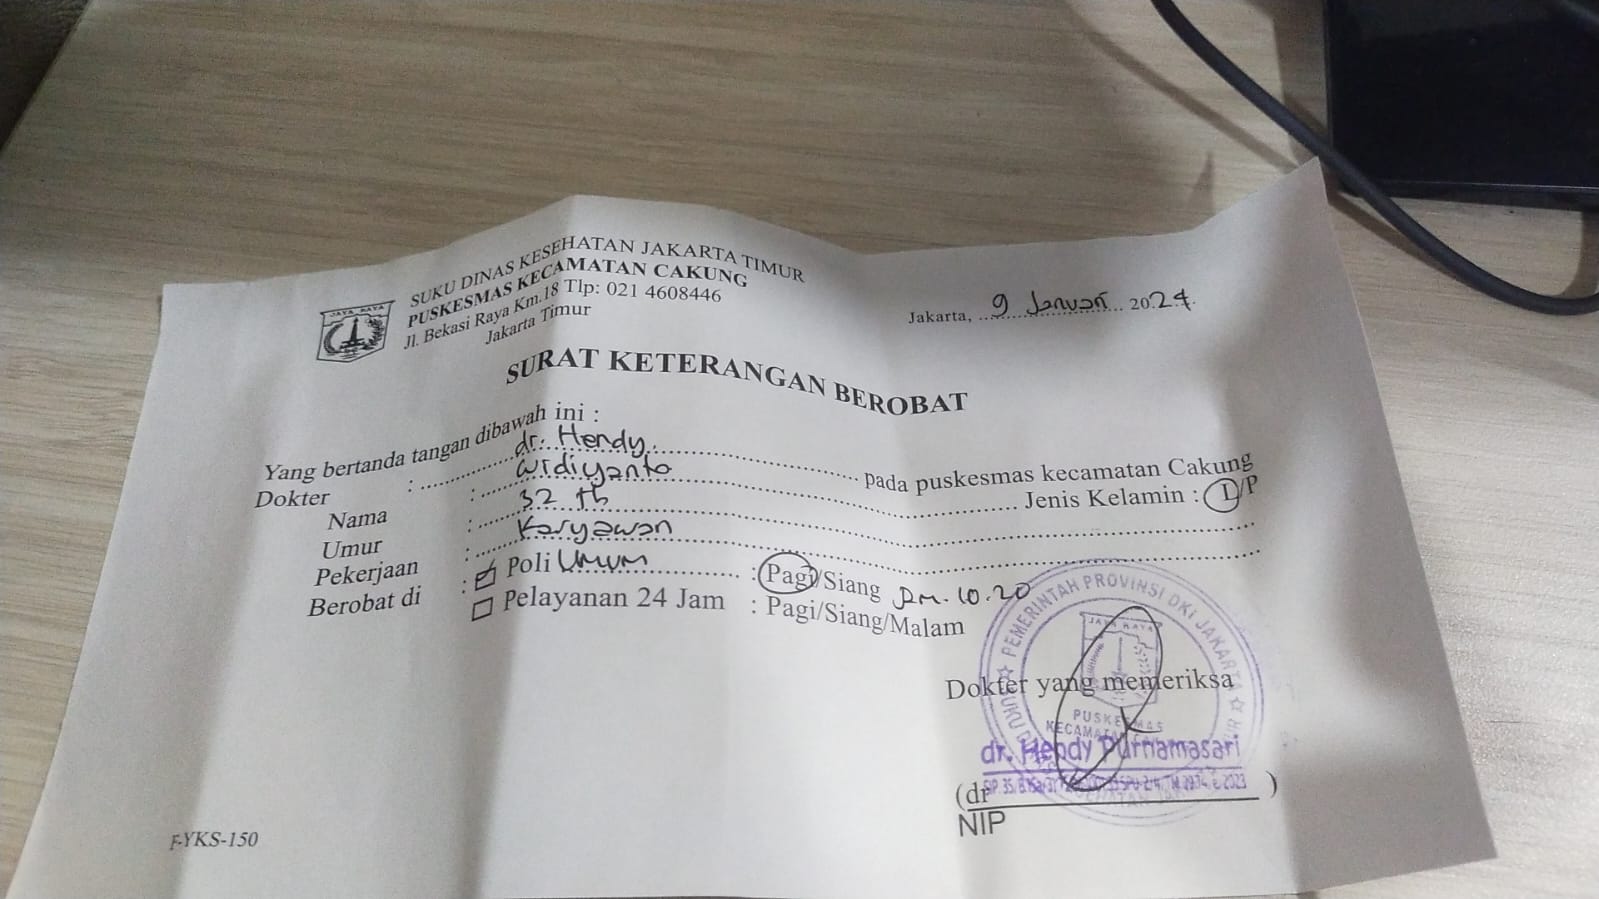 SUKU DINAS KESEHATAN JAKARTA TIMUR
PUSKESMAS KECAMATAN CAKUNG
Jl. Bekasi Raya Km.18 Tlp: 021 4608446
Jakarta Timur
JAYA RAYA
Jakarta, 9 Januari 2024.
SURAT KETERANGAN BEROBAT
Yang bertanda tangan dibawah ini :
Dokter : dr. Hendy pada puskesmas kecamatan Cakung
Nama : Wrdiyanto Jenis Kelamin : L/P
Umur : 32 th
Pekerjaan : Karyawan
Berobat di : Poli Umum : Pagi/Siang Jam. 10.20
Pelayanan 24 Jam : Pagi/Siang/Malam
Dokter yang memeriksa
PEMERINTAH PROVINSI DKI JAKARTA
JAYA RAYA
PUSKESMAS
KECAMATAN
dr. Hendy Purnamasari
(dr )
NIP
F-YKS-150